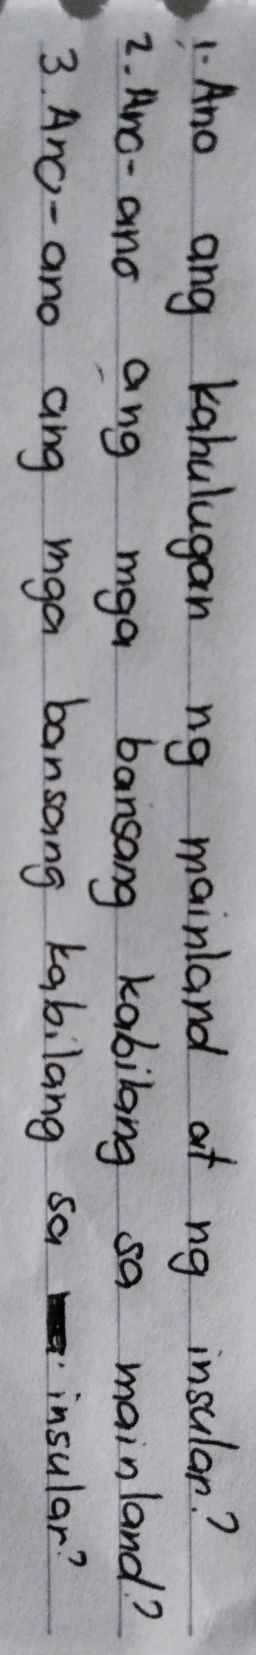 1. Ano ang kahulugan ng mainland at ng insular?
2. Ano-ano ang mga bansang kabilang sa mainland?
3. Ano-ano ang mga bansang kabilang sa insular?